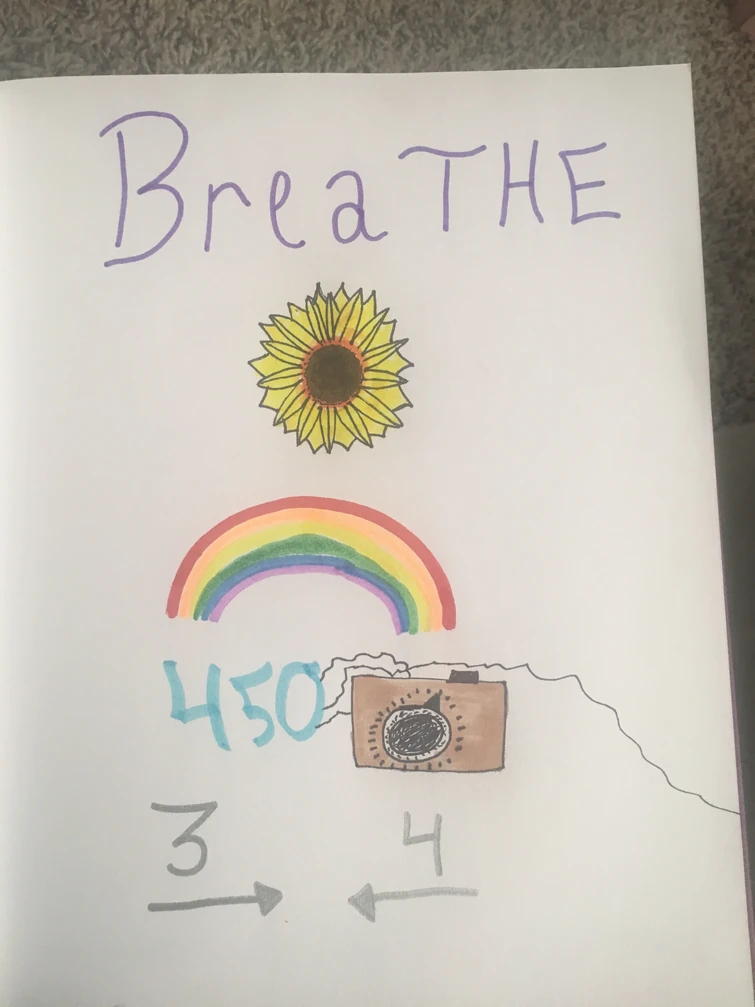 BreaTHE
450
3 4